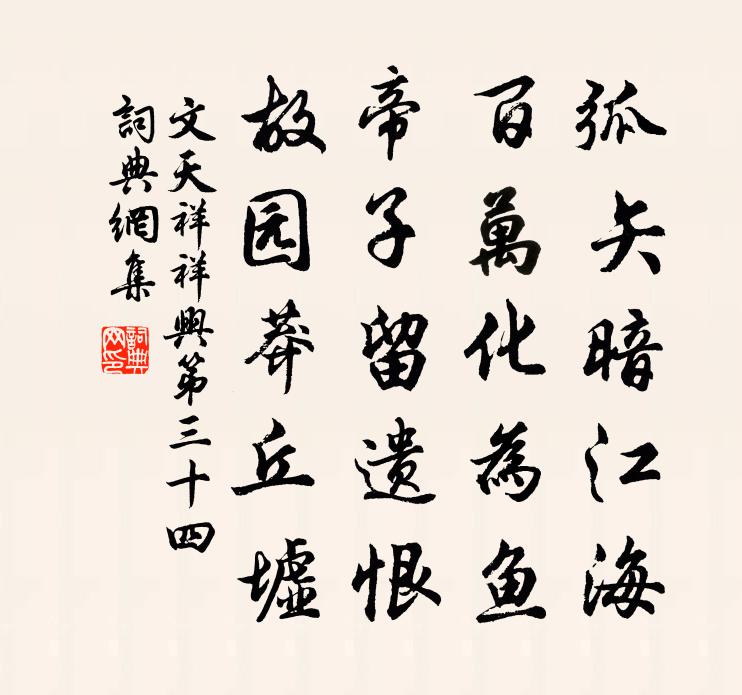 弧矢暗江海
百萬化為鱼
帝子留遗恨
故园莽丘墟
文天祥祥興第三十四
詞典網集
詞典网印